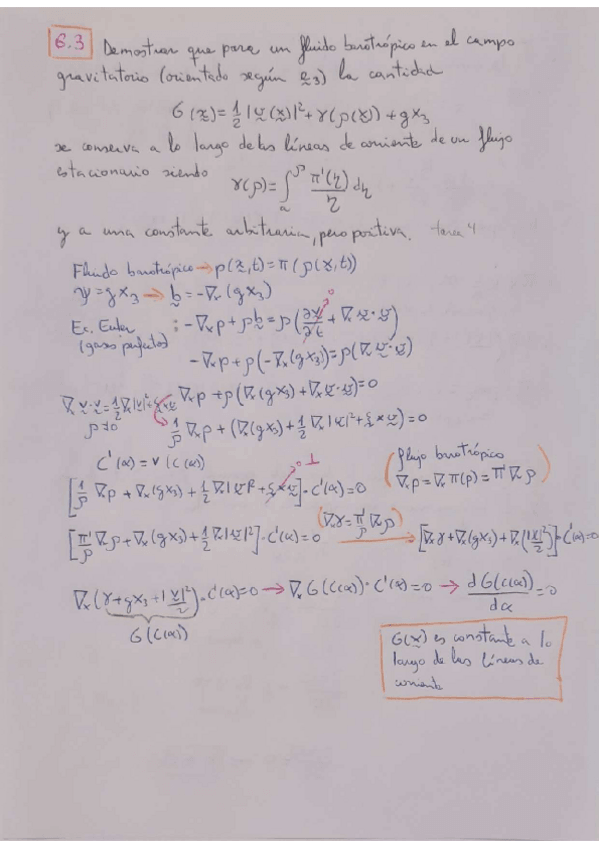 6.3 Demostrar que para un fluido barotrópico en el campo
gravitatorio (orientado según e₃) la cantidad
G(x) = 1/2 |v(x)|² + γ(ρ(x)) + gx₃
se conserva a lo largo de las líneas de corriente de un flujo
estacionario siendo γ(ρ) = ∫ₐ^ρ π'(η)/η dη
y a una constante arbitraria, pero positiva. tarea 4
Fluido barotrópico → p(x,t) = π(ρ(x,t))
ψ = gx₃ → b = -∇ₓ(gx₃)
Ec. Euler (gases perfectos) : -∇ₓp + ρb = ρ(∂v/∂t + ∇ₓv·v) 0
-∇ₓp + ρ(-∇ₓ(gx₃)) = ρ(∇ₓv·v)
∇ₓp + ρ(∇ₓ(gx₃) + ∇ₓv·v) = 0
∇ₓv·v = 1/2 ∇ₓ|v|² + ξ×v
ρ≠0
1/ρ ∇ₓp + (∇ₓ(gx₃) + 1/2 ∇ₓ|v|² + ξ×v) = 0
C'(α) = v(C(α))
[1/ρ ∇ₓp + ∇ₓ(gx₃) + 1/2 ∇ₓ|v|² + ξ×v]·C'(α) = 0
0 ⊥
(flujo barotrópico
∇ₓp = ∇ₓπ(ρ) = π'∇ₓρ)
[π'/ρ ∇ₓρ + ∇ₓ(gx₃) + 1/2 ∇ₓ|v|²]·C'(α) = 0 (∇ₓγ = π'/ρ ∇ₓρ) → [∇ₓγ + ∇ₓ(gx₃) + ∇ₓ(|v|²/2)]·C'(α) = 0
∇ₓ(γ + gx₃ + |v|²/2)·C'(α) = 0 → ∇ₓG(C(α))·C'(α) = 0 → dG(C(α))/dα = 0
G(C(α))
G(x) es constante a lo
largo de las líneas de
corriente